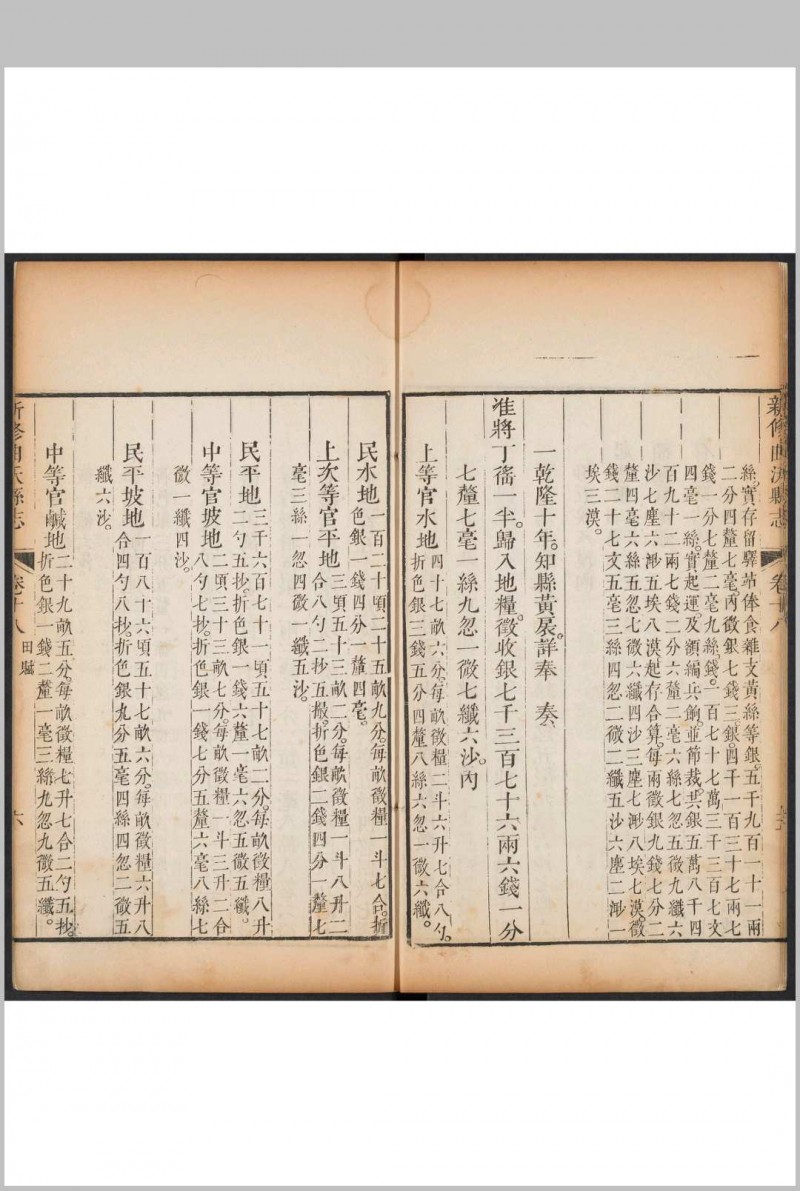 新修曲沃縣志
卷十八
絲實存留驛站俸食雜支黃絲等銀五千九百一十一兩
二分四釐七毫丙徵銀七錢三銀四千一百三十七兩七
錢一分七釐二毫九絲錢一百七十七萬三千三百七文
四毫一絲實起運及領編兵餉並節裁共銀五萬八千四
百九十二兩七錢二分六釐二毫六絲七忽五微九纖六
沙七塵六渺五埃八漠起存合算每兩徵銀九錢七分二
釐四毫六絲五忽七微六纖四沙三塵七渺八埃七漠徵
錢二十七文五毫三絲四忽二微二纖五沙六塵二渺一
埃三漠
一乾隆十年知縣黃 詳奉 奏
准將丁徭一半歸入地糧徵收銀七千三百七十六兩六錢一分
七釐七毫一絲九忽一微七纖六沙內
上等官水地四十七畝六分每畝徵糧二斗六升七合八勺
折色銀三錢五分四釐八絲六忽一微六纖
民水地一百二十頃二十五畝九分每畝徵糧一斗七合折
色銀一錢四分一釐四毫
上次等官平地三頃五十三畝二分每畝徵糧一斗八升二
合八勺二抄五撮折色銀二錢四分一釐七
毫三絲一忽四微一纖五沙
民平地三千六百七十一頃五十七畝二分每畝徵糧八升
二勺五抄折色銀一錢六釐一毫六忽五微五纖
中等官坡地二頃三十三畝七分每畝徵糧一斗三升二合
八勺七抄折色銀一錢七分五釐六毫八絲七
微一纖四沙
民平坡地一百八十六頃五十七畝六分每畝徵糧六升八
合四勺八抄折色銀九分五毫四絲四忽二微五
纖六沙
中等官鹹地二十九畝五分每畝徵糧七升七合二勺五抄
折色銀一錢二釐一毫三絲九忽九微五纖
新修曲沃縣志
卷十八
田賦
六